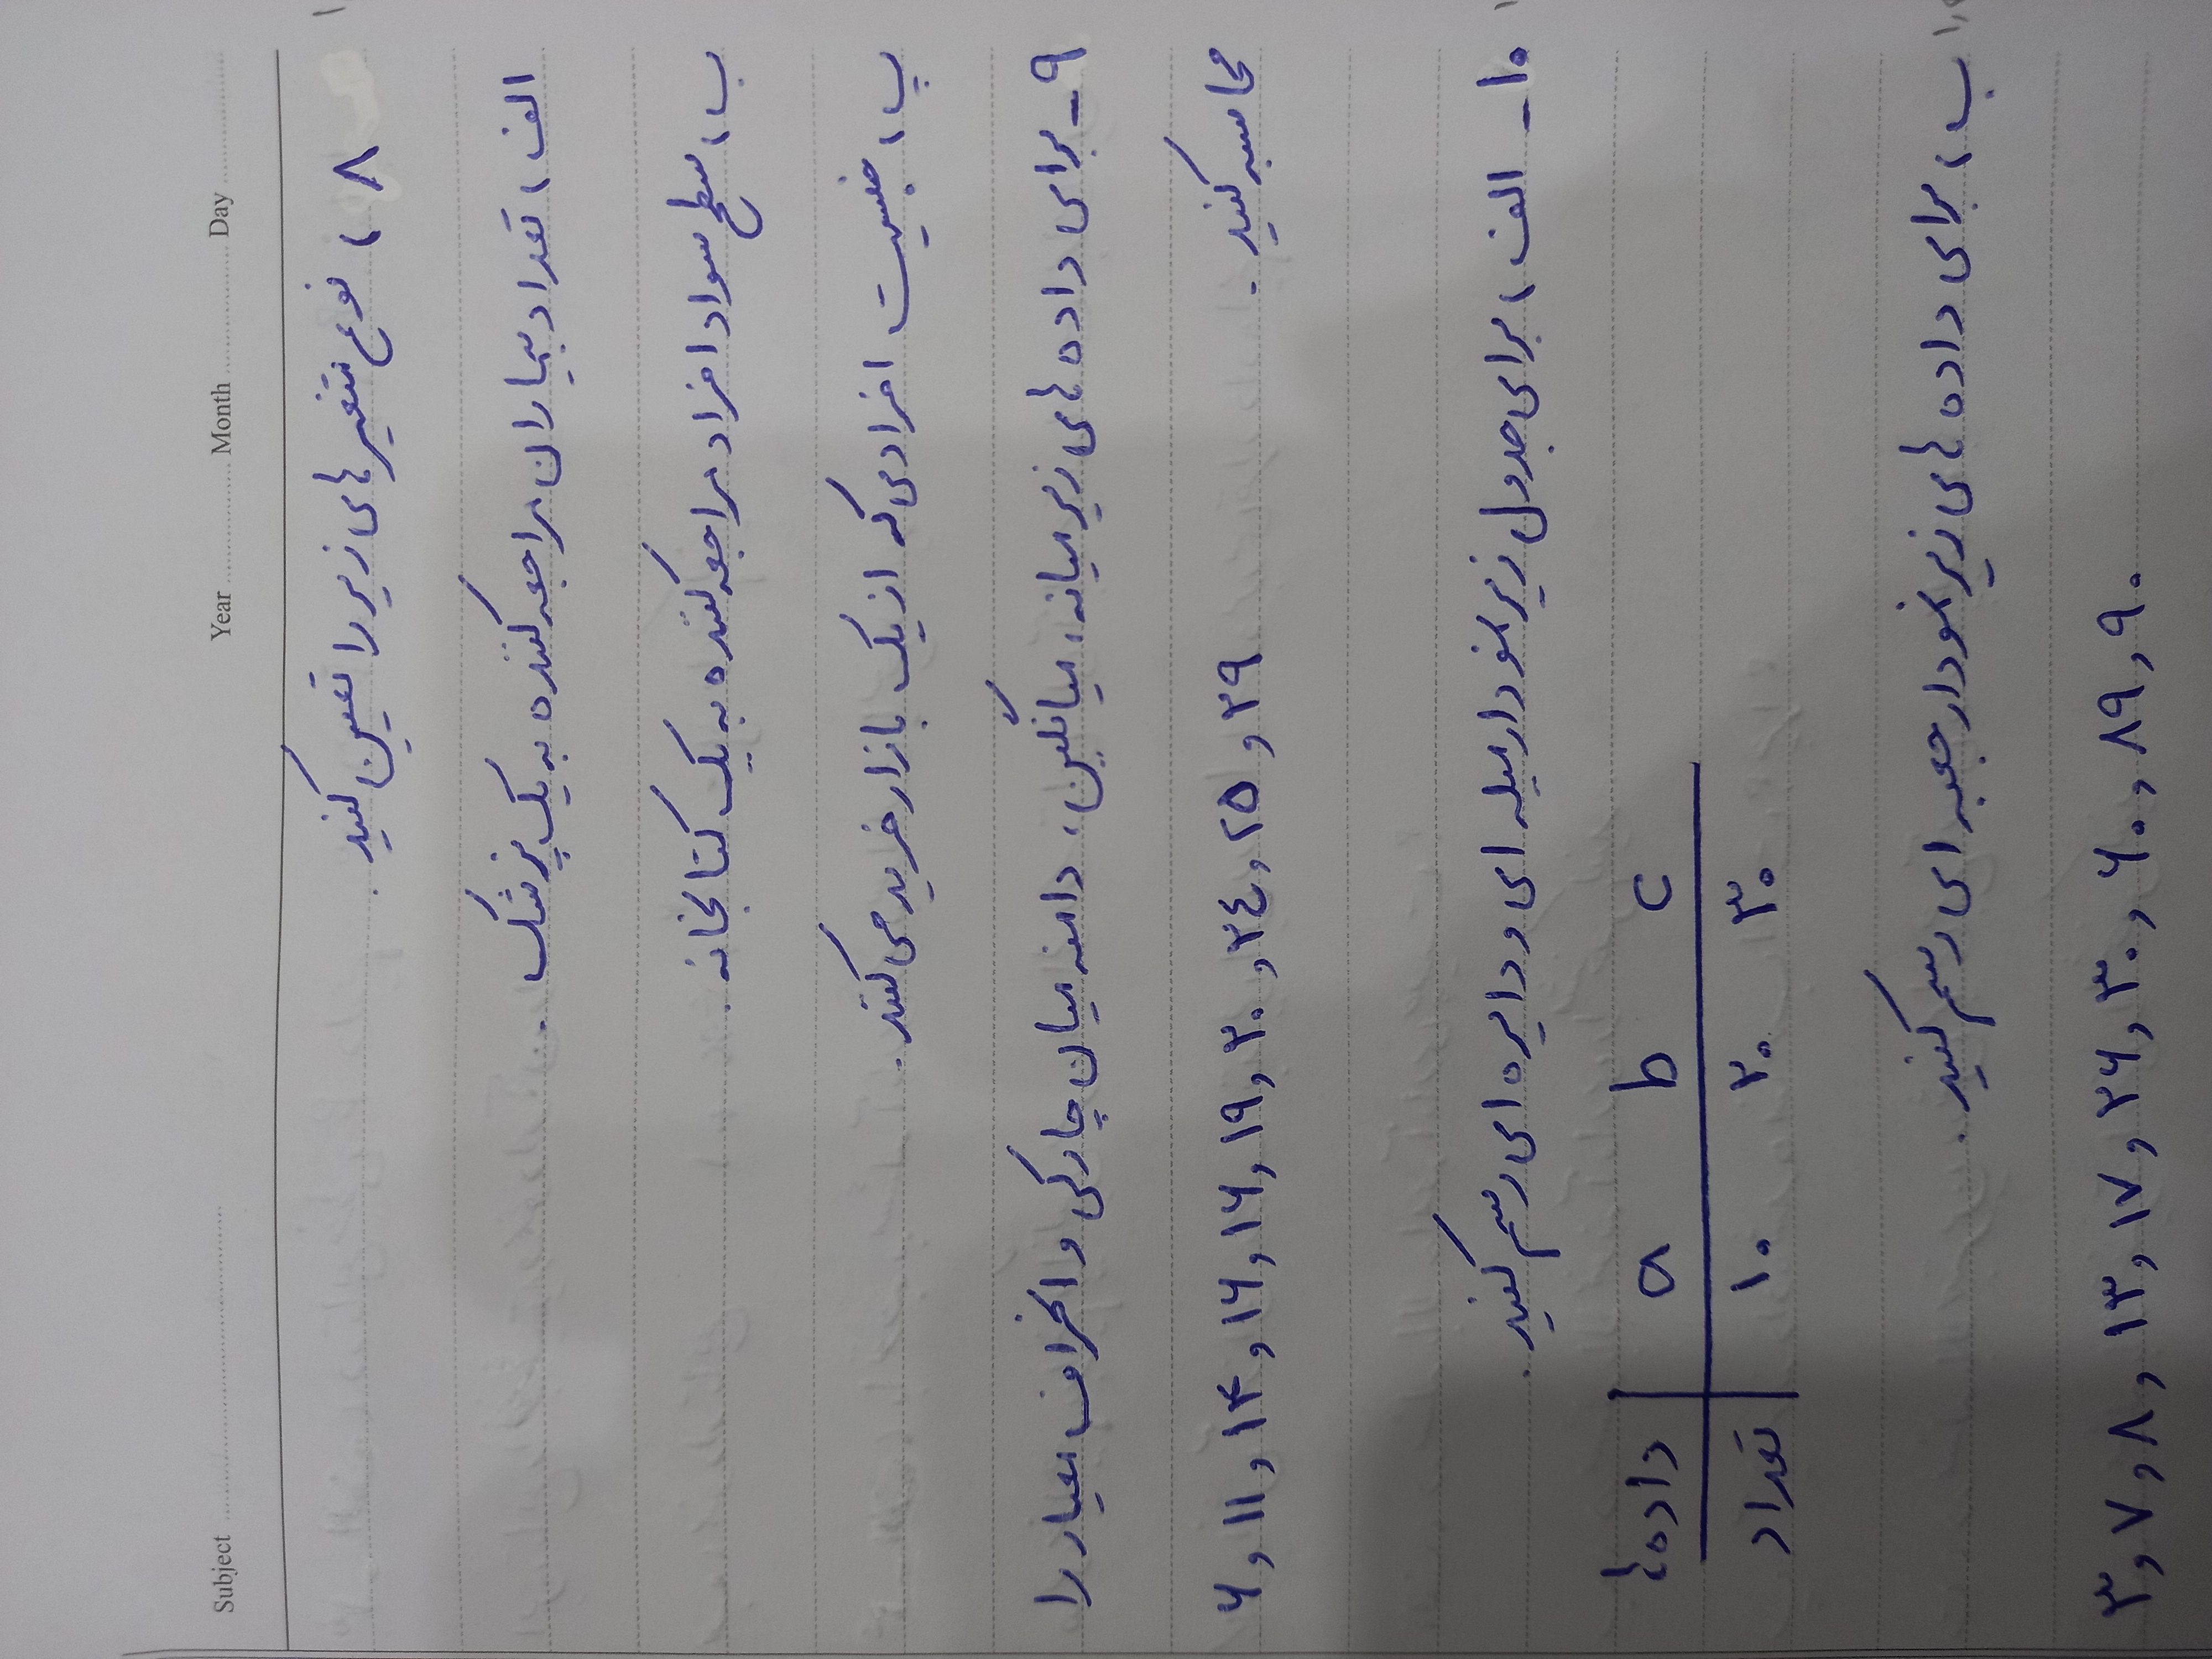 Subject Year Month Day
۸) نوع متغیر های زیر را تعیین کنید.
الف) تعداد بیماران مراجعه کننده به یک پزشک.
ب) سطح سواد افراد مراجعه کننده به یک کتابخانه.
پ) جنسیت افرادی که از یک بازار خرید می کنند.
۹- برای داده های زیر میانه، میانگین، دامنه میان چارکی و انحراف معیار را
محاسبه کنید. ۶, ۱۱, ۱۴, ۱۶, ۱۶, ۱۹, ۲۰, ۲۴, ۲۵, ۲۹
۱۰- الف) برای جدول زیر نمودار میله ای و دایره ای رسم کنید.
داده ها a b c
تعداد ۱۰ ۲۰ ۳۰
ب) برای داده های زیر نمودار جعبه ای رسم کنید.
۳, ۷, ۸, ۱۳, ۱۷, ۲۶, ۳۰, ۶۰, ۸۹, ۹۰